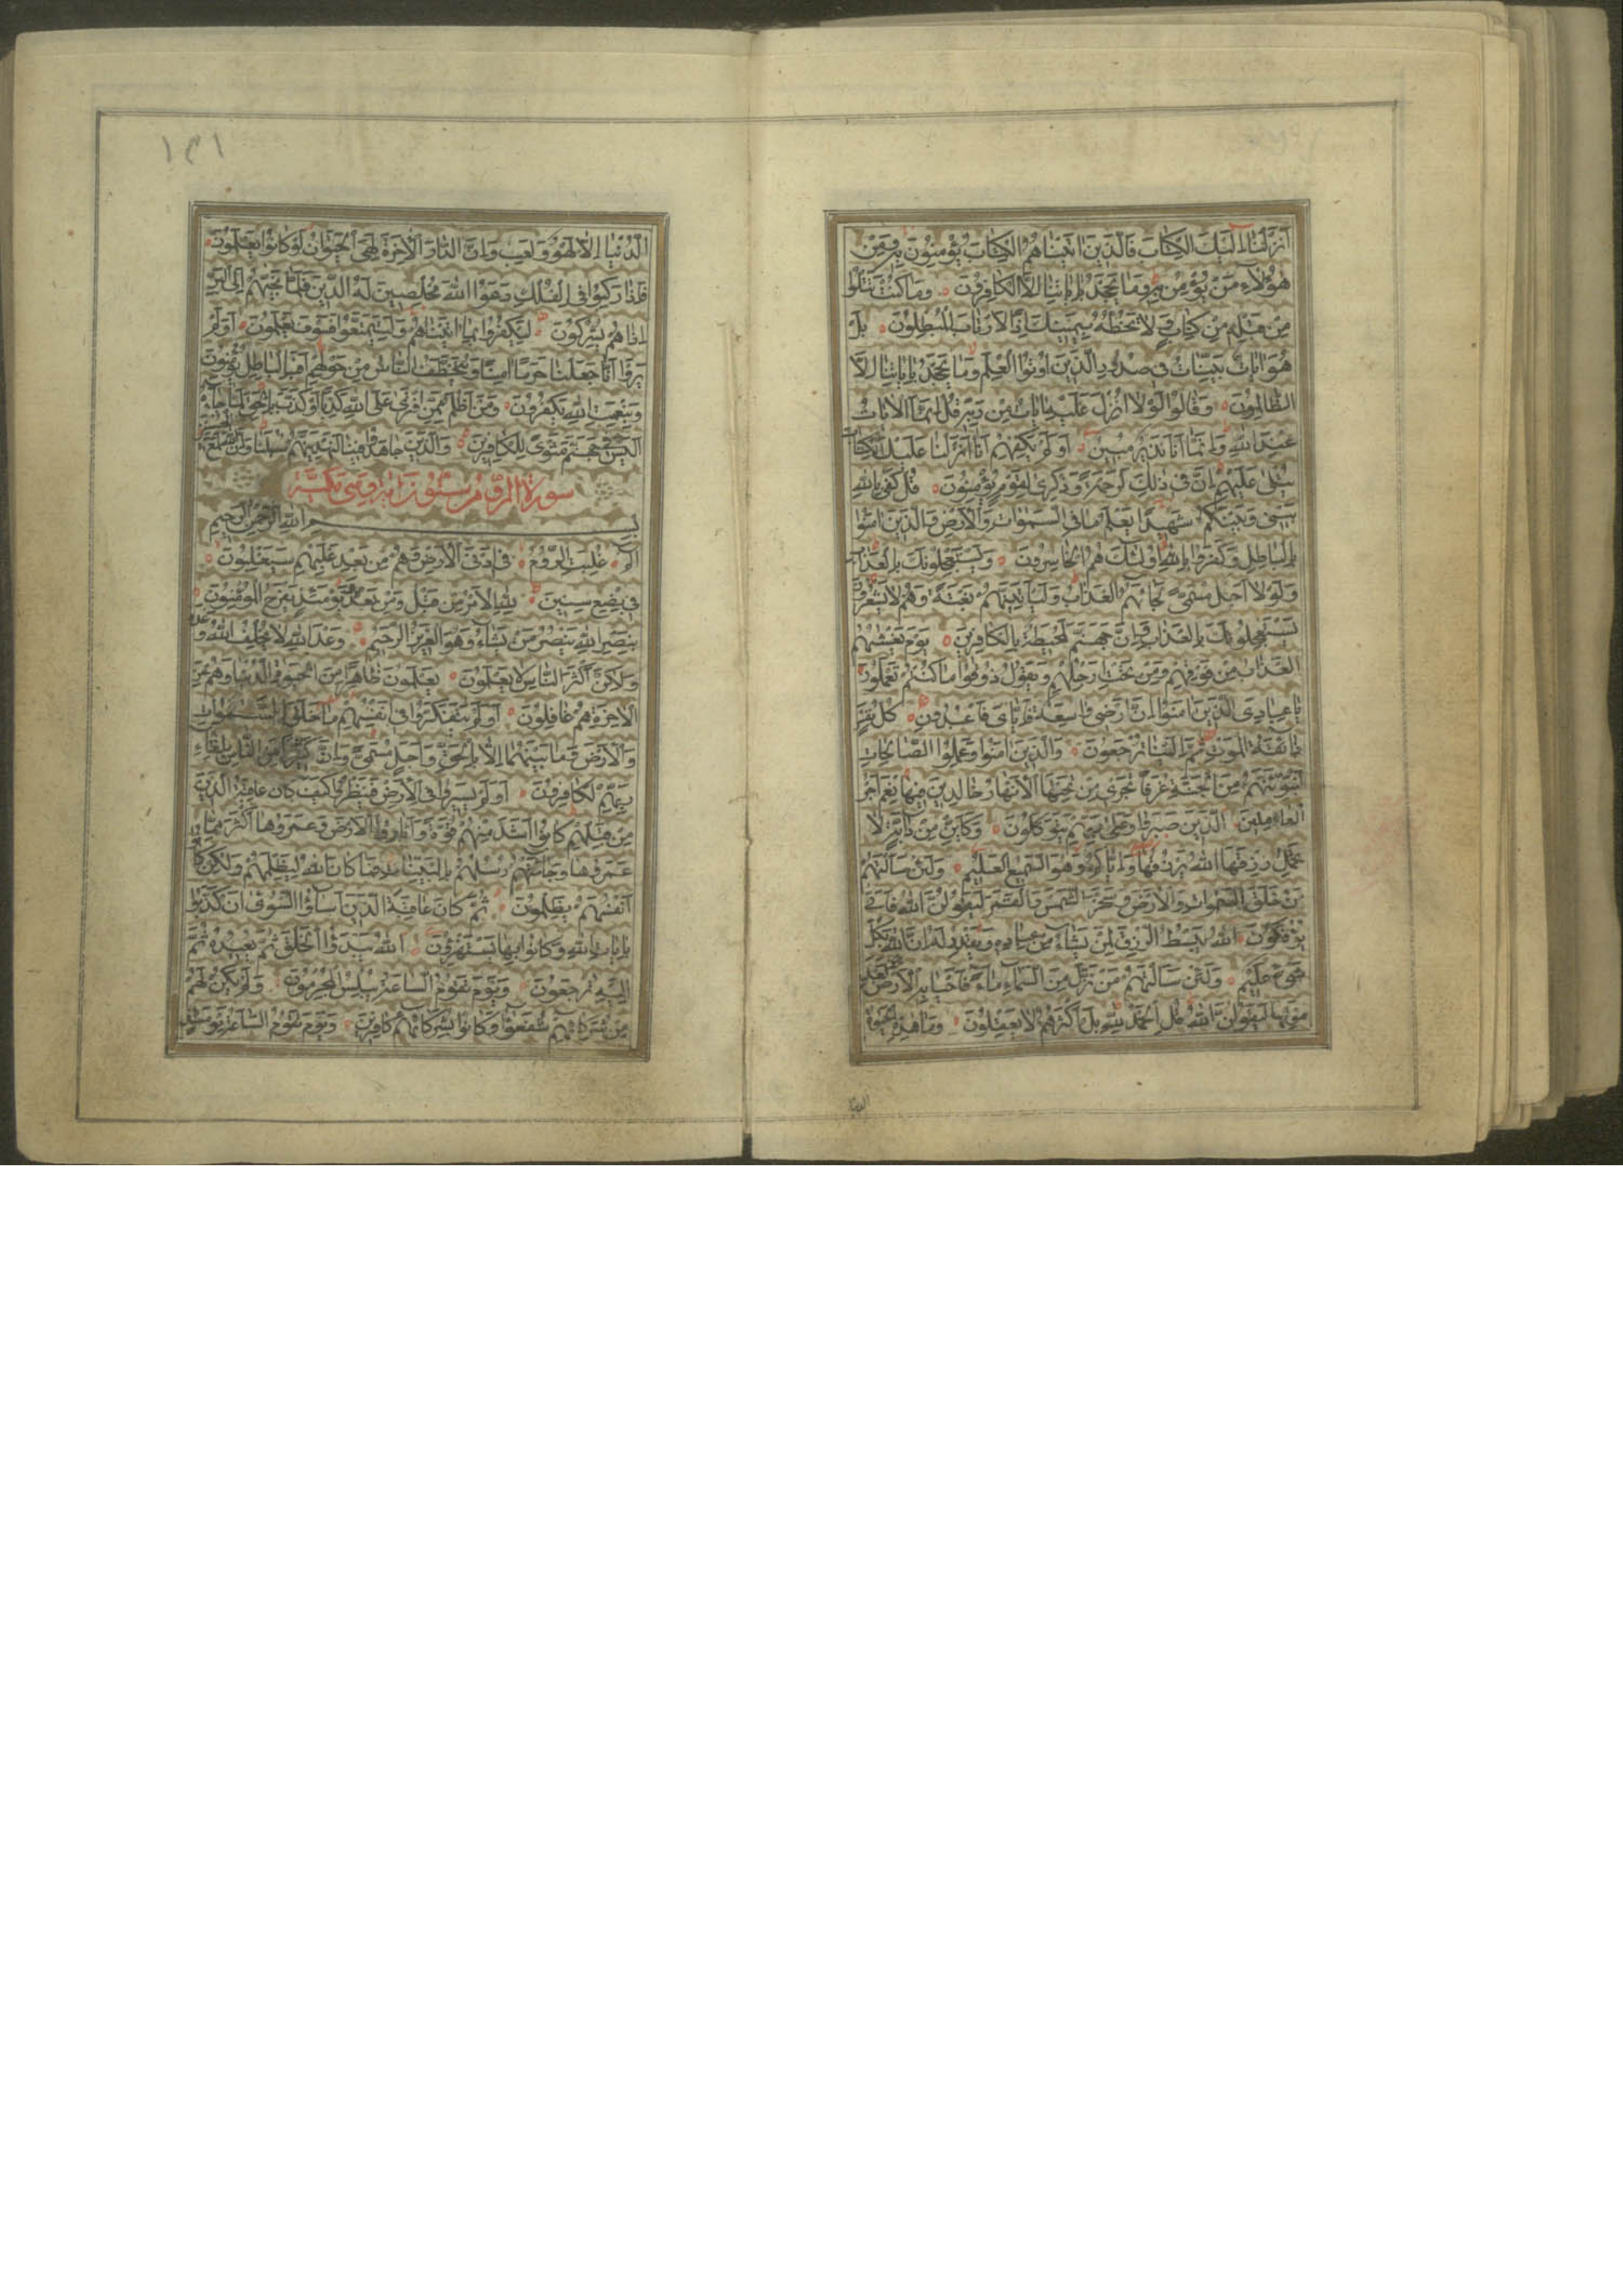 اَنْزَلْنَا اِلَيْكَ الْكِتَابَ فَالَّذِينَ اٰتَيْنَاهُمُ الْكِتَابَ يُؤْمِنُونَ بِهِ وَمِنْ
هٰؤُلَاءِ مَنْ يُؤْمِنُ بِهِ وَمَا يَجْحَدُ بِاٰيَاتِنَا اِلَّا الْكَافِرُونَ وَمَا كُنْتَ تَتْلُوا
مِنْ قَبْلِهِ مِنْ كِتَابٍ وَلَا تَخُطُّهُ بِيَمِينِكَ اِذًا لَارْتَابَ الْمُبْطِلُونَ بَلْ
هُوَ اٰيَاتٌ بَيِّنَاتٌ فِي صُدُورِ الَّذِينَ اُوتُوا الْعِلْمَ وَمَا يَجْحَدُ بِاٰيَاتِنَا اِلَّا
الظَّالِمُونَ وَقَالُوا لَوْلَا اُنْزِلَ عَلَيْهِ اٰيَاتٌ مِنْ رَبِّهِ قُلْ اِنَّمَا الْاٰيَاتُ
عِنْدَ اللهِ وَاِنَّمَا اَنَا نَذِيرٌ مُبِينٌ اَوَلَمْ يَكْفِهِمْ اَنَّا اَنْزَلْنَا عَلَيْكَ الْكِتَابَ
يُتْلٰى عَلَيْهِمْ اِنَّ فِي ذٰلِكَ لَرَحْمَةً وَذِكْرٰى لِقَوْمٍ يُؤْمِنُونَ قُلْ كَفٰى بِاللهِ
بَيْنِي وَبَيْنَكُمْ شَهِيدًا يَعْلَمُ مَا فِي السَّمٰوَاتِ وَالْاَرْضِ وَالَّذِينَ اٰمَنُوا
بِالْبَاطِلِ وَكَفَرُوا بِاللهِ اُولٰئِكَ هُمُ الْخَاسِرُونَ وَيَسْتَعْجِلُونَكَ بِالْعَذَابِ
وَلَوْلَا اَجَلٌ مُسَمًّى لَجَاءَهُمُ الْعَذَابُ وَلَيَأْتِيَنَّهُمْ بَغْتَةً وَهُمْ لَا يَشْعُرُونَ
يَسْتَعْجِلُونَكَ بِالْعَذَابِ وَاِنَّ جَهَنَّمَ لَمُحِيطَةٌ بِالْكَافِرِينَ يَوْمَ يَغْشٰيهُمُ
الْعَذَابُ مِنْ فَوْقِهِمْ وَمِنْ تَحْتِ اَرْجُلِهِمْ وَيَقُولُ ذُوقُوا مَا كُنْتُمْ تَعْمَلُونَ
يَا عِبَادِيَ الَّذِينَ اٰمَنُوا اِنَّ اَرْضِي وَاسِعَةٌ فَاِيَّايَ فَاعْبُدُونِ كُلُّ نَفْسٍ
ذَائِقَةُ الْمَوْتِ ثُمَّ اِلَيْنَا تُرْجَعُونَ وَالَّذِينَ اٰمَنُوا وَعَمِلُوا الصَّالِحَاتِ
لَنُبَوِّئَنَّهُمْ مِنَ الْجَنَّةِ غُرَفًا تَجْرِي مِنْ تَحْتِهَا الْاَنْهَارُ خَالِدِينَ فِيهَا نِعْمَ اَجْرُ
الْعَامِلِينَ الَّذِينَ صَبَرُوا وَعَلٰى رَبِّهِمْ يَتَوَكَّلُونَ وَكَاَيِّنْ مِنْ دَابَّةٍ لَا
تَحْمِلُ رِزْقَهَا اللهُ يَرْزُقُهَا وَاِيَّاكُمْ وَهُوَ السَّمِيعُ الْعَلِيمُ وَلَئِنْ سَاَلْتَهُمْ
مَنْ خَلَقَ السَّمٰوَاتِ وَالْاَرْضَ وَسَخَّرَ الشَّمْسَ وَالْقَمَرَ لَيَقُولُنَّ اللهُ فَاَنّٰى
يُؤْفَكُونَ اللهُ يَبْسُطُ الرِّزْقَ لِمَنْ يَشَاءُ مِنْ عِبَادِهِ وَيَقْدِرُ لَهُ اِنَّ اللهَ بِكُلِّ
شَيْءٍ عَلِيمٌ وَلَئِنْ سَاَلْتَهُمْ مَنْ نَزَّلَ مِنَ السَّمَاءِ مَاءً فَاَحْيَا بِهِ الْاَرْضَ مِنْ بَعْدِ
مَوْتِهَا لَيَقُولُنَّ اللهُ قُلِ الْحَمْدُ لِلّٰهِ بَلْ اَكْثَرُهُمْ لَا يَعْقِلُونَ وَمَا هٰذِهِ الْحَيٰوةُ
الدنيا
١٣١
الدُّنْيَا اِلَّا لَهْوٌ وَلَعِبٌ وَاِنَّ الدَّارَ الْاٰخِرَةَ لَهِيَ الْحَيَوَانُ لَوْ كَانُوا يَعْلَمُونَ
فَاِذَا رَكِبُوا فِي الْفُلْكِ دَعَوُا اللهَ مُخْلِصِينَ لَهُ الدِّينَ فَلَمَّا نَجّٰيهُمْ اِلَى الْبَرِّ
اِذَا هُمْ يُشْرِكُونَ لِيَكْفُرُوا بِمَا اٰتَيْنَاهُمْ وَلِيَتَمَتَّعُوا فَسَوْفَ يَعْلَمُونَ اَوَلَمْ
يَرَوْا اَنَّا جَعَلْنَا حَرَمًا اٰمِنًا وَيُتَخَطَّفُ النَّاسُ مِنْ حَوْلِهِمْ اَفَبِالْبَاطِلِ يُؤْمِنُونَ
وَبِنِعْمَةِ اللهِ يَكْفُرُونَ وَمَنْ اَظْلَمُ مِمَّنِ افْتَرٰى عَلَى اللهِ كَذِبًا اَوْ كَذَّبَ بِالْحَقِّ لَمَّا جَاءَهُ
اَلَيْسَ فِي جَهَنَّمَ مَثْوًى لِلْكَافِرِينَ وَالَّذِينَ جَاهَدُوا فِينَا لَنَهْدِيَنَّهُمْ سُبُلَنَا وَاِنَّ اللهَ لَمَعَ الْمُحْسِنِينَ
سورة الروم ستون اية وهي مكية
بِسْمِ اللهِ الرَّحْمٰنِ الرَّحِيمِ
الم غُلِبَتِ الرُّومُ فِي اَدْنَى الْاَرْضِ وَهُمْ مِنْ بَعْدِ غَلَبِهِمْ سَيَغْلِبُونَ
فِي بِضْعِ سِنِينَ لِلّٰهِ الْاَمْرُ مِنْ قَبْلُ وَمِنْ بَعْدُ وَيَوْمَئِذٍ يَفْرَحُ الْمُؤْمِنُونَ
بِنَصْرِ اللهِ يَنْصُرُ مَنْ يَشَاءُ وَهُوَ الْعَزِيزُ الرَّحِيمُ وَعْدَ اللهِ لَا يُخْلِفُ اللهُ وَعْدَهُ
وَلٰكِنَّ اَكْثَرَ النَّاسِ لَا يَعْلَمُونَ يَعْلَمُونَ ظَاهِرًا مِنَ الْحَيٰوةِ الدُّنْيَا وَهُمْ عَنِ
الْاٰخِرَةِ هُمْ غَافِلُونَ اَوَلَمْ يَتَفَكَّرُوا فِي اَنْفُسِهِمْ مَا خَلَقَ اللهُ السَّمٰوَاتِ
وَالْاَرْضَ وَمَا بَيْنَهُمَا اِلَّا بِالْحَقِّ وَاَجَلٍ مُسَمًّى وَاِنَّ كَثِيرًا مِنَ النَّاسِ بِلِقَاءِ
رَبِّهِمْ لَكَافِرُونَ اَوَلَمْ يَسِيرُوا فِي الْاَرْضِ فَيَنْظُرُوا كَيْفَ كَانَ عَاقِبَةُ الَّذِينَ
مِنْ قَبْلِهِمْ كَانُوا اَشَدَّ مِنْهُمْ قُوَّةً وَاَثَارُوا الْاَرْضَ وَعَمَرُوهَا اَكْثَرَ مِمَّا
عَمَرُوهَا وَجَاءَتْهُمْ رُسُلُهُمْ بِالْبَيِّنَاتِ فَمَا كَانَ اللهُ لِيَظْلِمَهُمْ وَلٰكِنْ كَانُوا
اَنْفُسَهُمْ يَظْلِمُونَ ثُمَّ كَانَ عَاقِبَةَ الَّذِينَ اَسَاؤُا السُّوأٰى اَنْ كَذَّبُوا
بِاٰيَاتِ اللهِ وَكَانُوا بِهَا يَسْتَهْزِؤُنَ اللهُ يَبْدَؤُا الْخَلْقَ ثُمَّ يُعِيدُهُ ثُمَّ
اِلَيْهِ تُرْجَعُونَ وَيَوْمَ تَقُومُ السَّاعَةُ يُبْلِسُ الْمُجْرِمُونَ وَلَمْ يَكُنْ لَهُمْ
مِنْ شُرَكَائِهِمْ شُفَعٰؤُا وَكَانُوا بِشُرَكَائِهِمْ كَافِرِينَ وَيَوْمَ تَقُومُ السَّاعَةُ يَوْمَئِذٍ